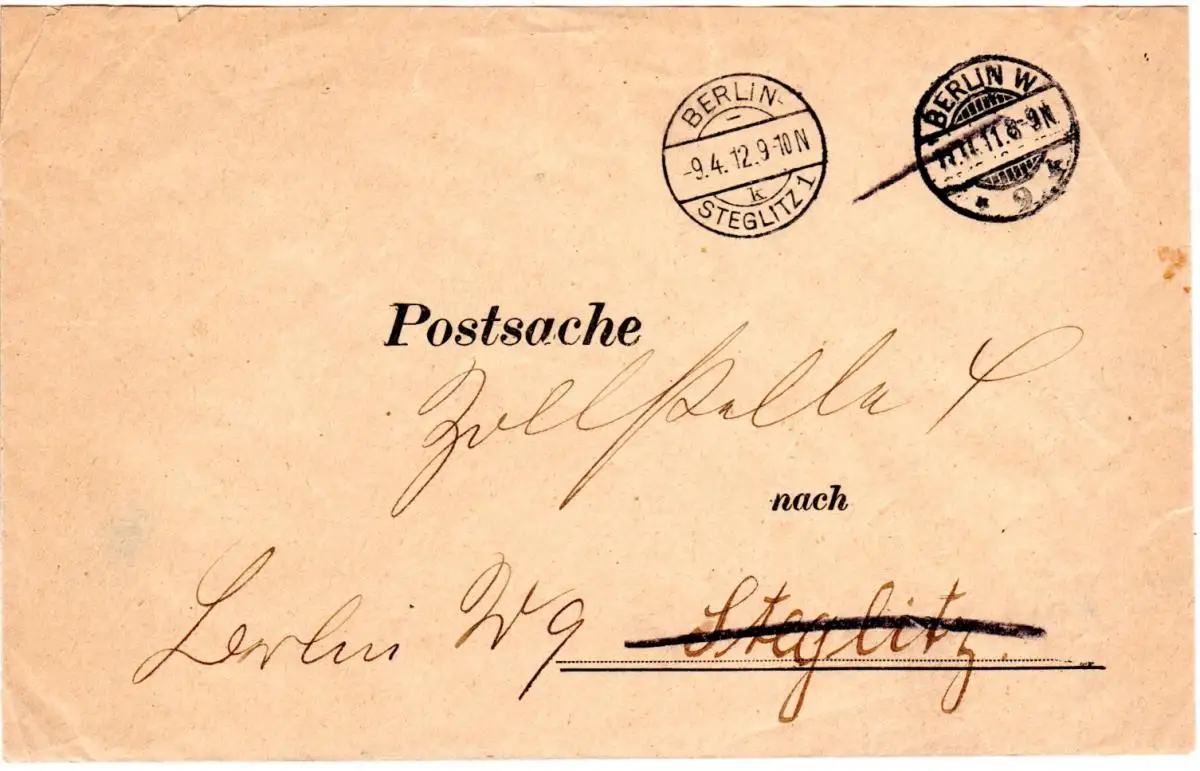 BERLIN-
-9.4.12.9-10N
k
STEGLITZ 1
BERLIN W
11.11.11.8-9N
* 9 k
Postsache
Zollstelle
nach
Berlin W 9 Steglitz.